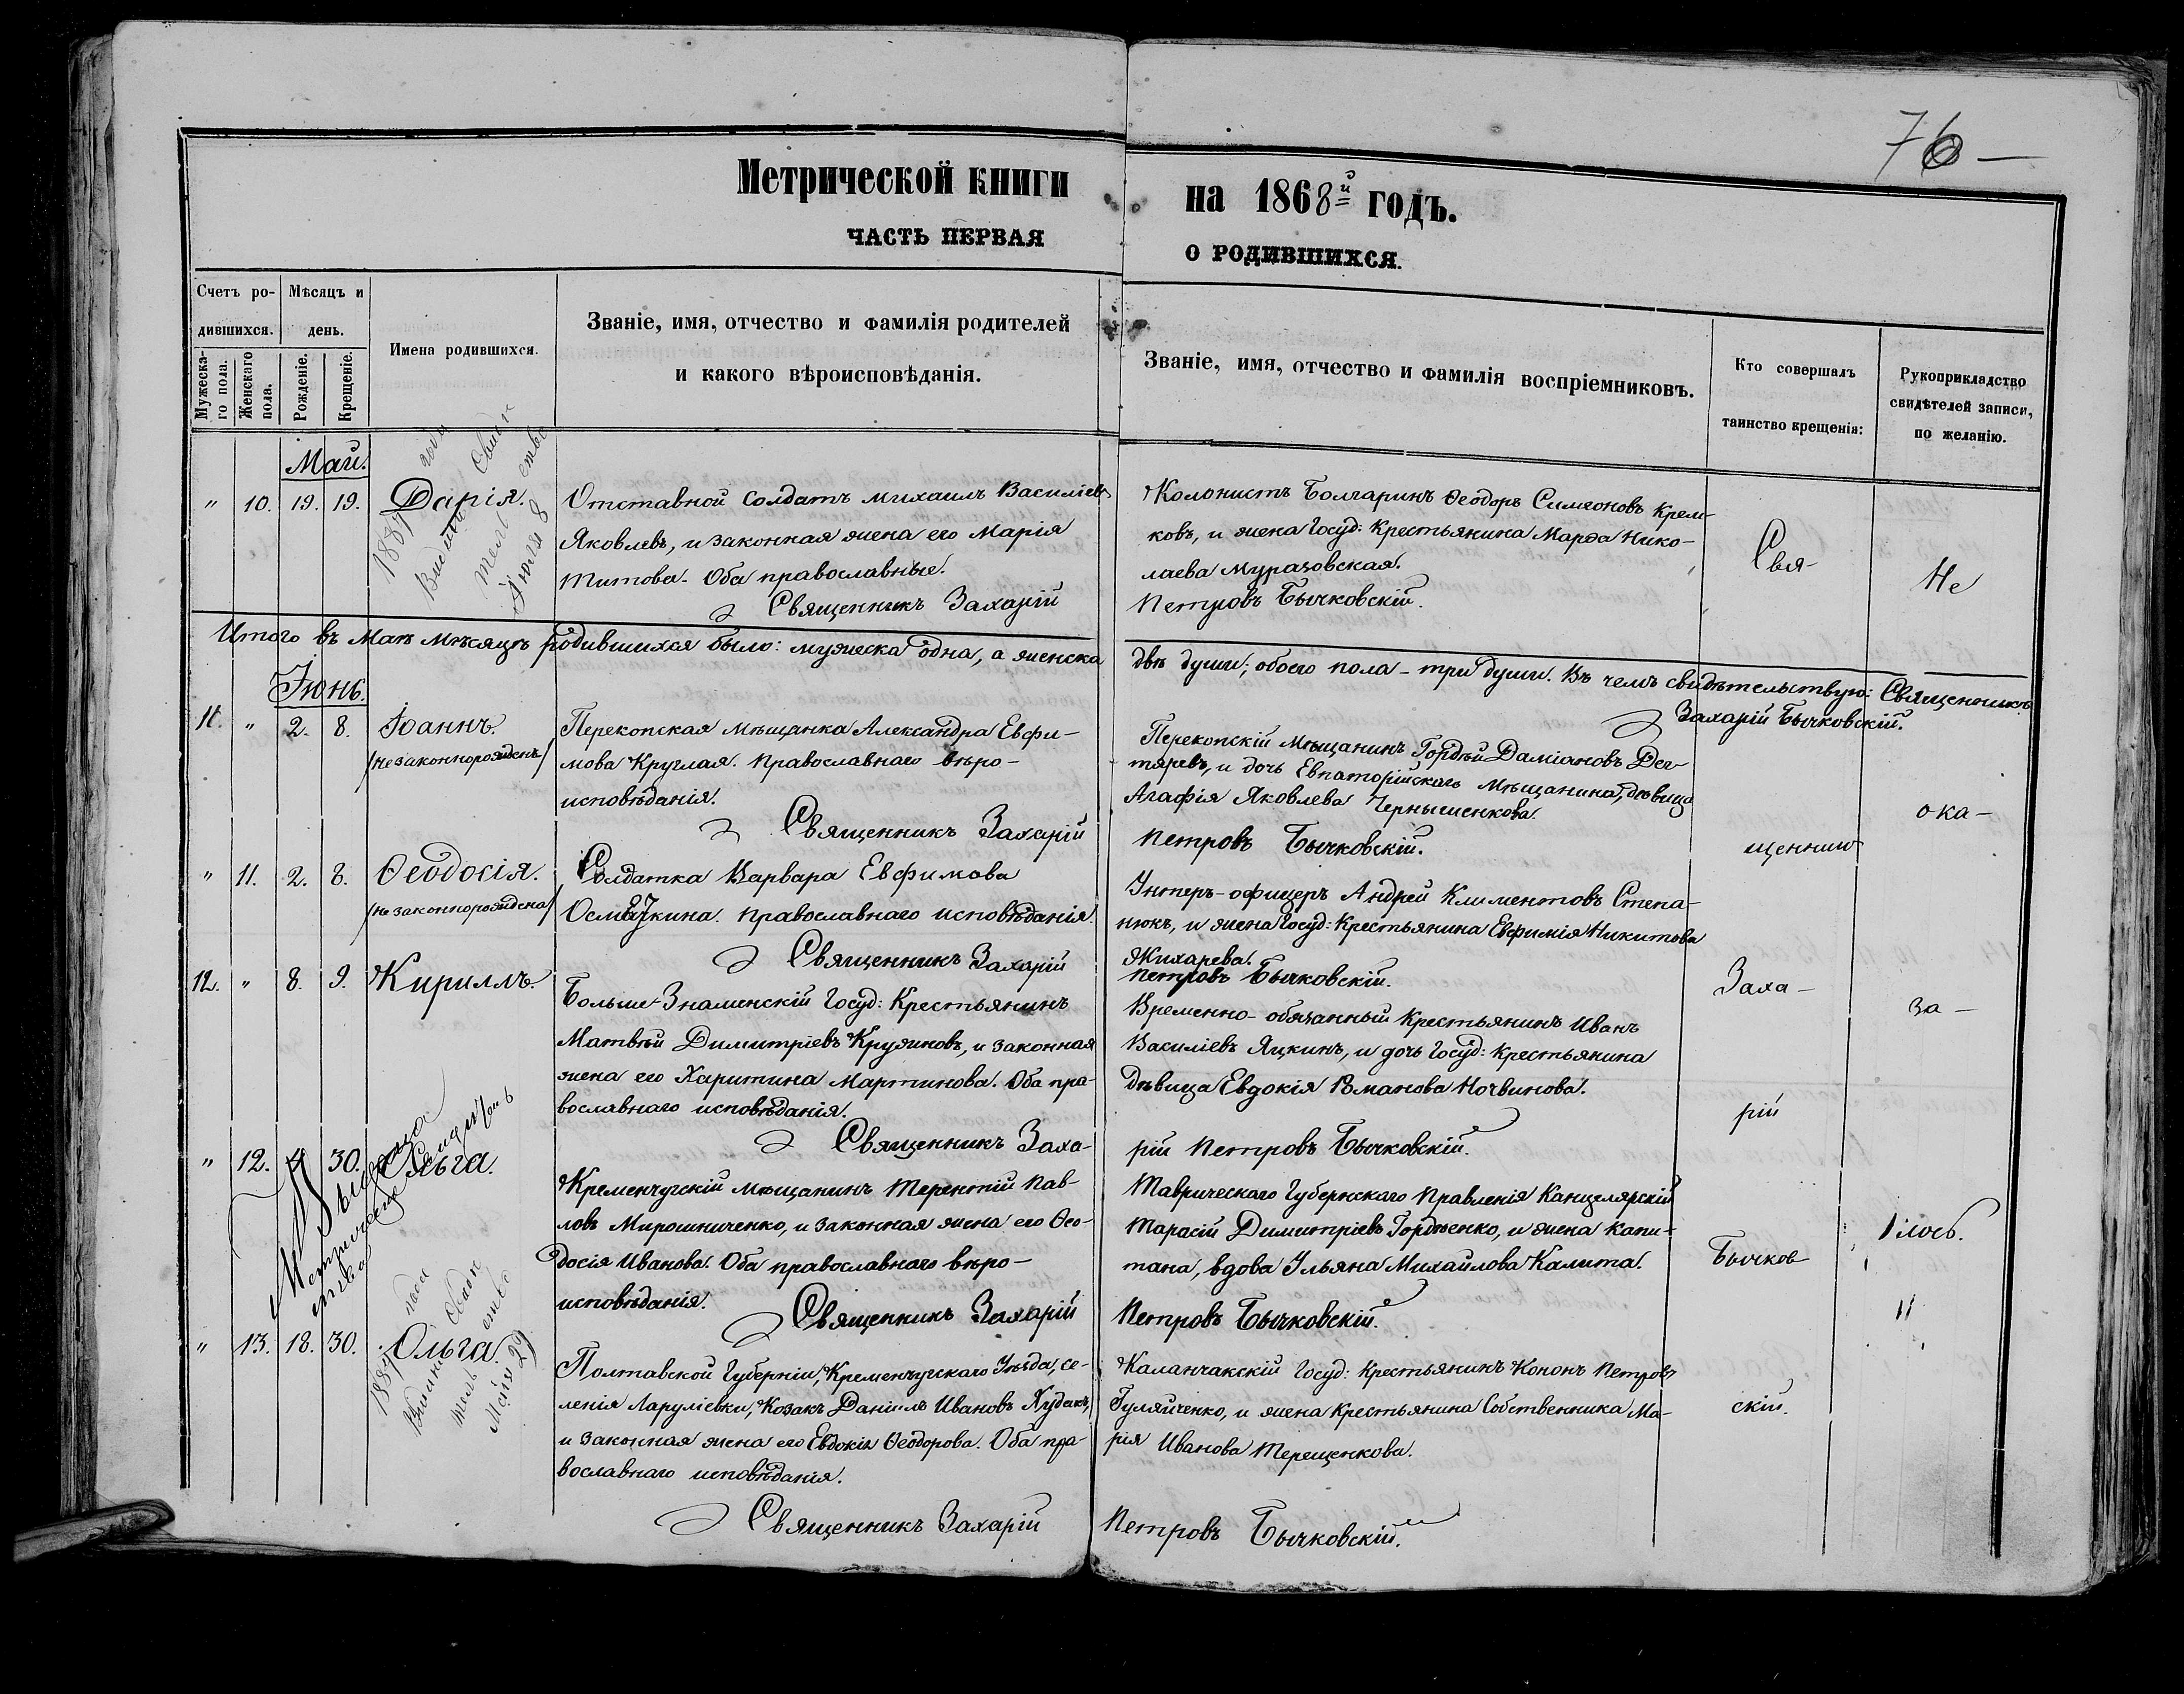 76 —
Метрической книги на 1868й годъ.
ЧАСТЬ ПЕРВАЯ О РОДИВШИХСЯ.
Счетъ ро-
дившихся.
Мужеска-
го пола.
Женскаго
пола.
Мѣсяцъ и
день.
Рожденіе.
Крещеніе.
Имена родившихся.
Званіе, имя, отчество и фамилія родителей
и какого вѣроисповѣданія.
Званіе, имя, отчество и фамилія воспріемниковъ.
Кто совершалъ
таинство крещенія:
Рукоприкладство
свидѣтелей записи,
по желанію.
Май.
" 10. 19. 19. Дарія.
Отставной Солдатъ Михаилъ Василіевъ
Яковлевъ, и законная жена его Марія
Титова. Оба православные.
Священникъ Захарій
Колонистъ Болгаринъ Ѳеодоръ Симеоновъ Крем-
ковъ, и жена Госуд: Крестьянина Марѳа Нико-
лаева Муразовская.
Петровъ Бычковскій.
Свя-
Не
Итого въ Маѣ мѣсяцѣ родившихся было: мужеска одна, а женска двѣ души; обоего пола – три души. Въ чемъ свидѣтельствую: Священникъ
Захарій Бычковскій.
Іюнь.
11. " 2. 8. Іоаннъ.
/незаконнорожденъ/
Перекопская Мѣщанка Александра Евфи-
мова Круглая. Православнаго вѣро-
исповѣданія.
Священникъ Захарій
Перекопскій Мѣщанинъ Гордѣй Даміановъ Дег-
тяревъ, и дочь Евпаторійскаго Мѣщанина, дѣвица
Агафія Яковлева Чернышенкова.
Петровъ Бычковскій.
щенник
ока-
" 11. 2. 8. Ѳеодосія.
/незаконнорождена/
Солдатка Варвара Евфимова
православнаго исповѣданія.
Священникъ Захарій
Унтеръ-офицеръ Андрей Климентовъ Степа-
нюкъ, и жена Госуд: Крестьянина Евфимія Никитова
Жихарева.
Петровъ Бычковскій.
12. " 8. 9. Кириллъ.
Больше-Знаменскій Госуд: Крестьянинъ
Матвѣй Димитріевъ Кружновъ, и законная
жена его Харитина Мартинова. Оба пра-
вославнаго исповѣданія.
Священникъ Заха-
Временно-обязанный Крестьянинъ Иванъ
Василіевъ Яцкинъ, и дочь Госуд: Крестьянина
Дѣвица Евдокія Романова Ночвинова.
рій Петровъ Бычковскій.
Заха-
рій
за-
" 12. 30. Ольга.
Кременчугскій Мѣщанинъ Терентій Пав-
ловъ Мирошниченко, и законная жена его Ѳео-
досія Иванова. Оба православнаго вѣро-
исповѣданія.
Священникъ Захарій
Таврическаго Губернскаго Правленія Канцелярскій
Тарасій Димитріевъ Гордѣенко, и жена капи-
тана, вдова Ульяна Михайлова Калита.
Петровъ Бычковскій.
Бычков
лось.
" 13. 18. 30. Ольга.
Полтавской Губерніи, Кременчугскаго Уѣзда, се-
ленія Ларуліевки, Козакъ Даніилъ Ивановъ Худакъ,
и законная жена его Евдокія Ѳеодорова. Оба пра-
вославнаго исповѣданія.
Священникъ Захарій
Каланчакскій Госуд: Крестьянинъ Кононъ Петровъ
Гуляйченко, и жена Крестьянина Собственника Ма-
рія Иванова Терещенкова.
Петровъ Бычковскій.
скій.